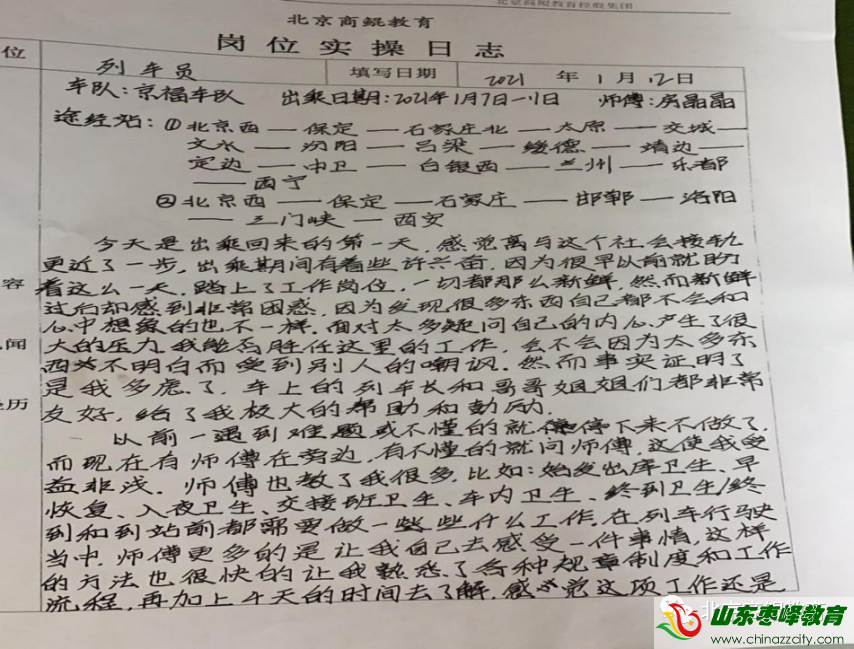 北京商鲲教育控股集团
北京商鲲教育
岗位实操日志
位 列车员 填写日期 2021 年 1 月 12 日
车队:京福车队 出乘日期:2021年1月7日—11日 师傅:房晶晶
途经站:①北京西——保定——石家庄北——太原——交城——
文水——汾阳——吕梁——绥德——靖边——
定边——中卫——白银西——兰州——乐都
——西宁
②北京西——保定——石家庄——邯郸——洛阳
——三门峡——西安
今天是出乘回来的第一天,感觉离与这个社会接轨
更近了一步,出乘期间有着些许兴奋,因为很早以前就盼
容 着这么一天,踏上了工作岗位,一切都那么新鲜,然而新鲜
过后却感到非常困惑,因为发现很多东西自己都不会和
心中想象的也不一样。面对太多疑问自己的内心产生了很
闻 大的压力,我能否胜任这里的工作,会不会因为太多东
西不明白而受到别人的嘲讽。然而事实证明了
历 是我多虑了,车上的列车长和哥哥姐姐们都非常
友好,给了我极大的帮助和勖励.
以前一遇到难题或不懂的就停下来不做了,
而现在有师傅在旁边,有不懂的就问师傅,这使我受
益非浅.师傅也教了我很多,比如:始发出库卫生、早
恢复、入夜卫生、交接班卫生、车内卫生、终到卫生/终
到和到站前都需要做一些些什么工作.在列车行驶
当中,师傅更多的是让我自己去感受一件事情,这样
的方法也很快的让我熟悉了各种规章制度和工作
流程,再加上今天的时间去了解,感觉这项工作还是
山东枣峰教育
www.chinazzcity.com